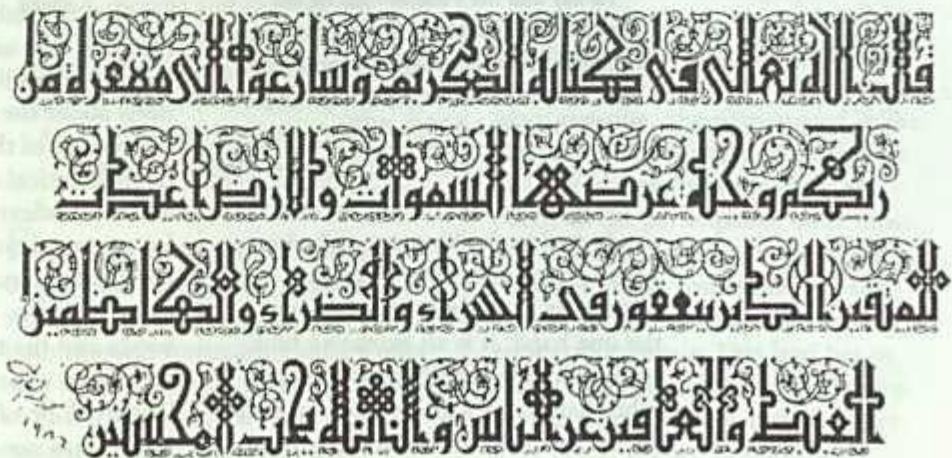 قال الله تعالى في كتابه الكريم وسارعوا الى مغفرة من
ربكم وجنة عرضها السموات والارض اعدت
للمتقين الذين ينفقون في السراء والضراء والكاظمين
الغيظ والعافين عن الناس والله يحب المحسنين